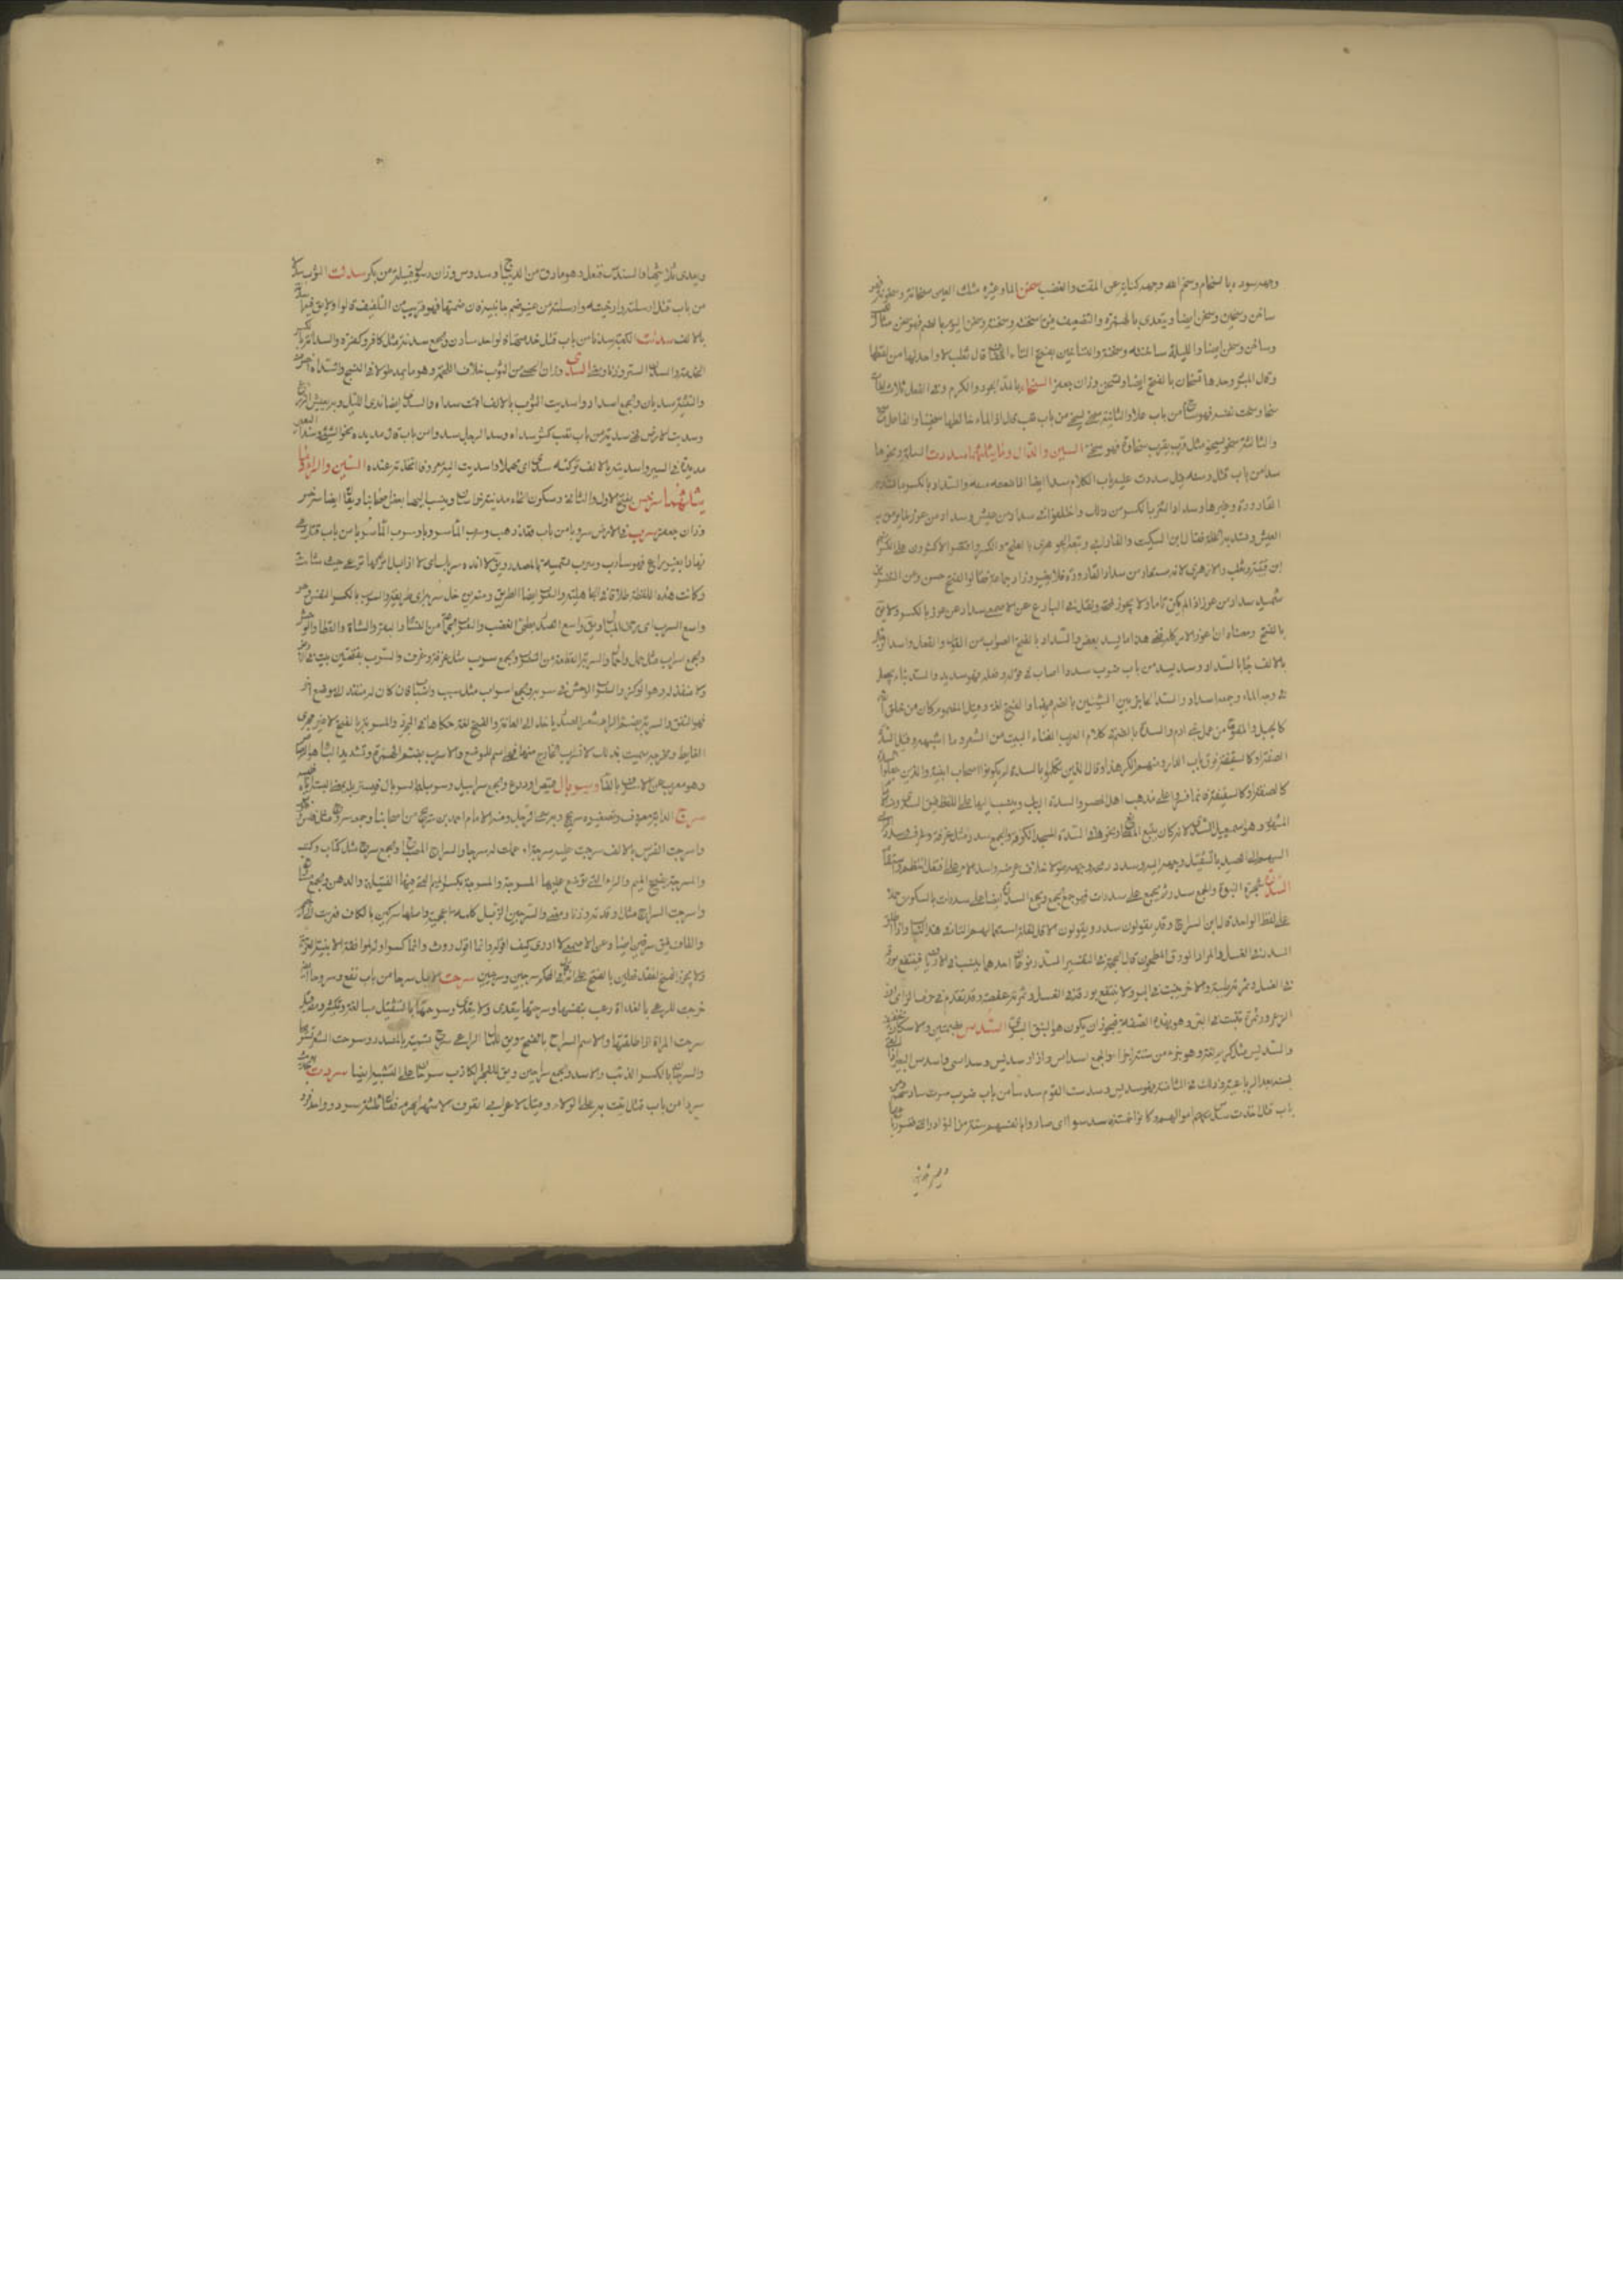 وجهه سوده بالسخام وسخم الله وجهه كناية عن المقت والغضب سخن الماء وغيره مثلث العين سخانة وسخونة فهو
ساخن وسخين وسخن ايضا ويتعدى بالهمزة والتضعيف فيق اسخنته وسخنته وسخن اليوم بالضم فهو سخن
وساخن وسخن ايضا والليلة ساخنة وسخنة والتساخين بفتح التاء الخفاف قال ثعلب لا واحد لها من لفظها
وقال المبرد واحدها تسخان بالفتح ايضا وتسخن وزان جعفر السخاء بالمد الجود والكرم وفي الفعل ثلاث لغات
سخا وسخت نفسه فهو ساخ من باب علا والثانية سخي يسخى من باب تعب
والثالثة سخو يسخو مثل قرب يقرب سخاوة فهو سخي السين والدال وما يثلثهما سددت الثلمة ونحوها
سدا من باب قتل ومنه قيل سددت عليه باب الكلام سدا ايضا اذا منعته منه والسداد بالكسر ما تسد به
القارورة وغيرها وسداد الثغر بالكسر من ذلك واختلفوا في سداد من عيش وسداد من عوز لما يرمق به
العيش وتسد به الخلة فقال ابن السكيت والفارابي وتبعه الجوهري بالفتح والكسر واقتصر الاكثرون على الكسر منهم
ابن قتيبة وثعلب والازهري لانه مستعار من سداد القارورة فلا يغير وزاد جماعة فقالوا الفتح لحن وعن النضر بن
شميل سداد من عوز اذا لم يكن تاما ولا يجوز فتحه ونقل في البارع عن الاصمعي سداد من عوز بالكسر ولا يق
بالفتح ومعناه ان اعوز الامر كله ففي هذا ما يسد بعض والسداد بالفتح الصواب من القول والفعل واسد الرجل
بالالف جاء بالسداد وسد يسد من باب ضرب سدودا اصاب في قوله وفعله فهو سديد والسد بناء يجعل
في وجه الماء والجمع اسداد والسد الحاجز بين الشيئين بالضم فيهما والفتح لغة وقيل المضموم ما كان من خلق الله
كالجبل والمفتوح من عمل بني ادم والسدة بالضم في كلام العرب الفناء لبيت من الشعر وما اشبهه وقيل السدة
كالصفة او كالسقيفة فوق باب الدار ومنهم من انكر هذا وقال الذين تكلموا بالسدة لم يكونوا اصحاب ابنية والذين جعلوا السدة
كالصفة او كالسقيفة فانما فسروها على مذهب اهل الحضر والسدة الباب وينسب اليها على اللفظ فيق السدي ومنه الامام
المشهور وهو اسمعيل السدي لانه كان يبيع المقانع ونحوها في سدة مسجد الكوفة والجمع سدد مثل غرفة وغرف وسددت الرامي
السهم الى الصيد بالتثقيل وجهه اليه وسدد رمحه وجهه طولا خلاف عرضه واستد الامر على افتعل انتظم واستقام
السدرة شجرة النبق والجمع سدر ثم يجمع على سدرات فهو جمع الجمع وتجمع السدرة ايضا على سدرات بالسكون حملا
على لفظ الواحدة قال ابن السراج وقد يقولون سدر ويريدون الاقل لقلة استعمالهم التاء في هذا الباب واذا اطلق
السدر في الغسل فالمراد الورق المطحون قال الحجة في التفسير السدر نوعان احدهما ينبت في الارياف فينتفع بورقه
في الغسل وثمرته طيبة والاخر ينبت في البر ولا ينتفع بورقه في الغسل وثمرته عفصة وقد تقدم في حرف الزاي ان
الزعرور ثمرة تنبت في البر وهو بهذه الصفة فيجوز ان يكون هو النبق البري السدس بضمتين والاسكان تخفيف
والسديس مثل كريم لغة وهو جزء من ستة اجزاء والجمع اسداس وازار سديس وسداسي واسدس البعير اذا القى
سنه بعد الرباعية وذلك في الثامنة فهو سديس وسدست القوم سدسا من باب ضرب صرت سادسهم ومن
باب قتل اخذت سدس اموالهم وكانوا خمسة فاسدسوا اي صاروا بانفسهم ستة من النوادر
ويعدى ثلاثيها والسندس فنعل وهو مارق من الديباج وسدوس وزان رسول قبيلة من بكر سدلت الثوب سدلا
من باب قتل ارسلته وارخيته من غير ضم جانبيه فان ضمتهما فهو قريب من التلفيف قالوا ولا يق فيه اسدلته
بالالف سدنت الكعبة سدنا من باب قتل خدمتها فالواحد سادن والجمع سدنة مثل كافر وكفرة والسدانة بالكسر
الخدمة والسدن الستر وزنا ومعنى السدى وزان الحصى من الثوب خلاف اللحمة وهو ما يمد طولا في النسج والسداة اخص منه
والتثنية سديان والجمع اسداء واسديت الثوب بالالف اقمت سداه والسدى ايضا ندى الليل وبه يعيش الزرع
وسديت الارض فهي سدية من باب تعب كثر سداها وسدا الرجل سدوا من باب قال مد يده نحو الشيء وسدا البعير
مد يده في السير واسديته بالالف تركته سدى اي مهملا واسديت اليه معروفا اتخذته عنده السين والراء وما
يثلثهما سرخس بفتح الاول والثاني وسكون الخاء مدينة من خراسان وينسب اليها بعض اصحابنا ويق ايضا سرخس
وزان جعفر سرب في الارض سروبا من باب قعد ذهب وسرب الماء سروبا وسرب المال سربا من باب قتل رعى
نهارا بغير راع فهو سارب وسرب تسمية بالمصدر ويق لا انده سربك اي لا ارد ابلك بل اتركها ترعى حيث شاءت
وكانت هذه اللفظة طلاقا في الجاهلية والسرب ايضا الطريق ومنه يق خل سربه اي طريقه والسرب بالكسر النفس وهو
واسع السرب اي رخي البال ويق واسع الصدر بطيء الغضب والسرب الجماعة من النساء والبقر والشاء والقطا والوحش
والجمع اسراب مثل حمل واحمال والسربة القطعة من السرب والجمع سرب مثل غرفة وغرف والسرب بفتحتين بيت في الارض
لا منفذ له وهو الوكر والسرب الوحش في سربه والجمع اسراب مثل سبب واسباب فان كان له منفذ الى موضع اخر
فهو النفق والمسربة بضم الراء شعر الصدر ياخذ الى العانة والفتح لغة حكاها في المجرد والمسربة بالفتح لا غير مجرى
الغايط ومخرجه سميت بذلك لانسراب الخارج منها فهي اسم للموضع والاسرب بضم الهمزة وتشديد الباء هو الرصاص
وهو معرب عن الاسرف بالفاء سربال قميص او درع والجمع سرابيل وسربلته السربال فتسربله بمعنى البسته اياه فلبسه
سرج الدابة معروف وتصغيره سريج وبه سمي الرجل ومنه الامام احمد بن سريج من اصحابنا وجمعه سروج مثل فلس وفلوس
واسرجت الفرس بالالف شددت عليه سرجه او عملت له سرجا والسراج المصباح والجمع سرج مثل كتاب وكتب
والمسرجة بفتح الميم والراء التي توضع عليها المسرجة والمسرجة بكسر الميم التي فيها الفتيلة والدهن والجمع مسارج
واسرجت السراج مثل اوقدته وزنا ومعنى والسرجين الزبل كلمة اعجمية واصلها سركين بالكاف فعربت الى الجيم
والقاف فيق سرقين ايضا وعن الاصمعي لا ادري كيف اقوله وانما اقول روث وانما كسر اوله لموافقة الابنية العربية
ولا يجوز الفتح لفقد فعلين بالفتح على انه قال في المحكم سرجين وسرجين سرحت الابل سرحا من باب نفع وسروحا ايضا
خرجت للرعي بالغداة وسرحتها يتعدى ولا يتعدى وسرحتها بالتثقيل مبالغة وتكثير ومنه قيل
سرحت المراة اذا طلقتها والاسم السراح بالفتح ويق للمال الراعي سرح تسمية بالمصدر وسرحت الشعر تسريحا
والسرحان بالكسر الذئب والاسد والجمع سراحين ويق للفجر الكاذب سرحان على التشبيه ايضا سردت الحديث
سردا من باب قتل اتيت به على الولاء وقيل لاعرابي اتعرف الاشهر الحرم فقال ثلثة سرد وواحد فرد